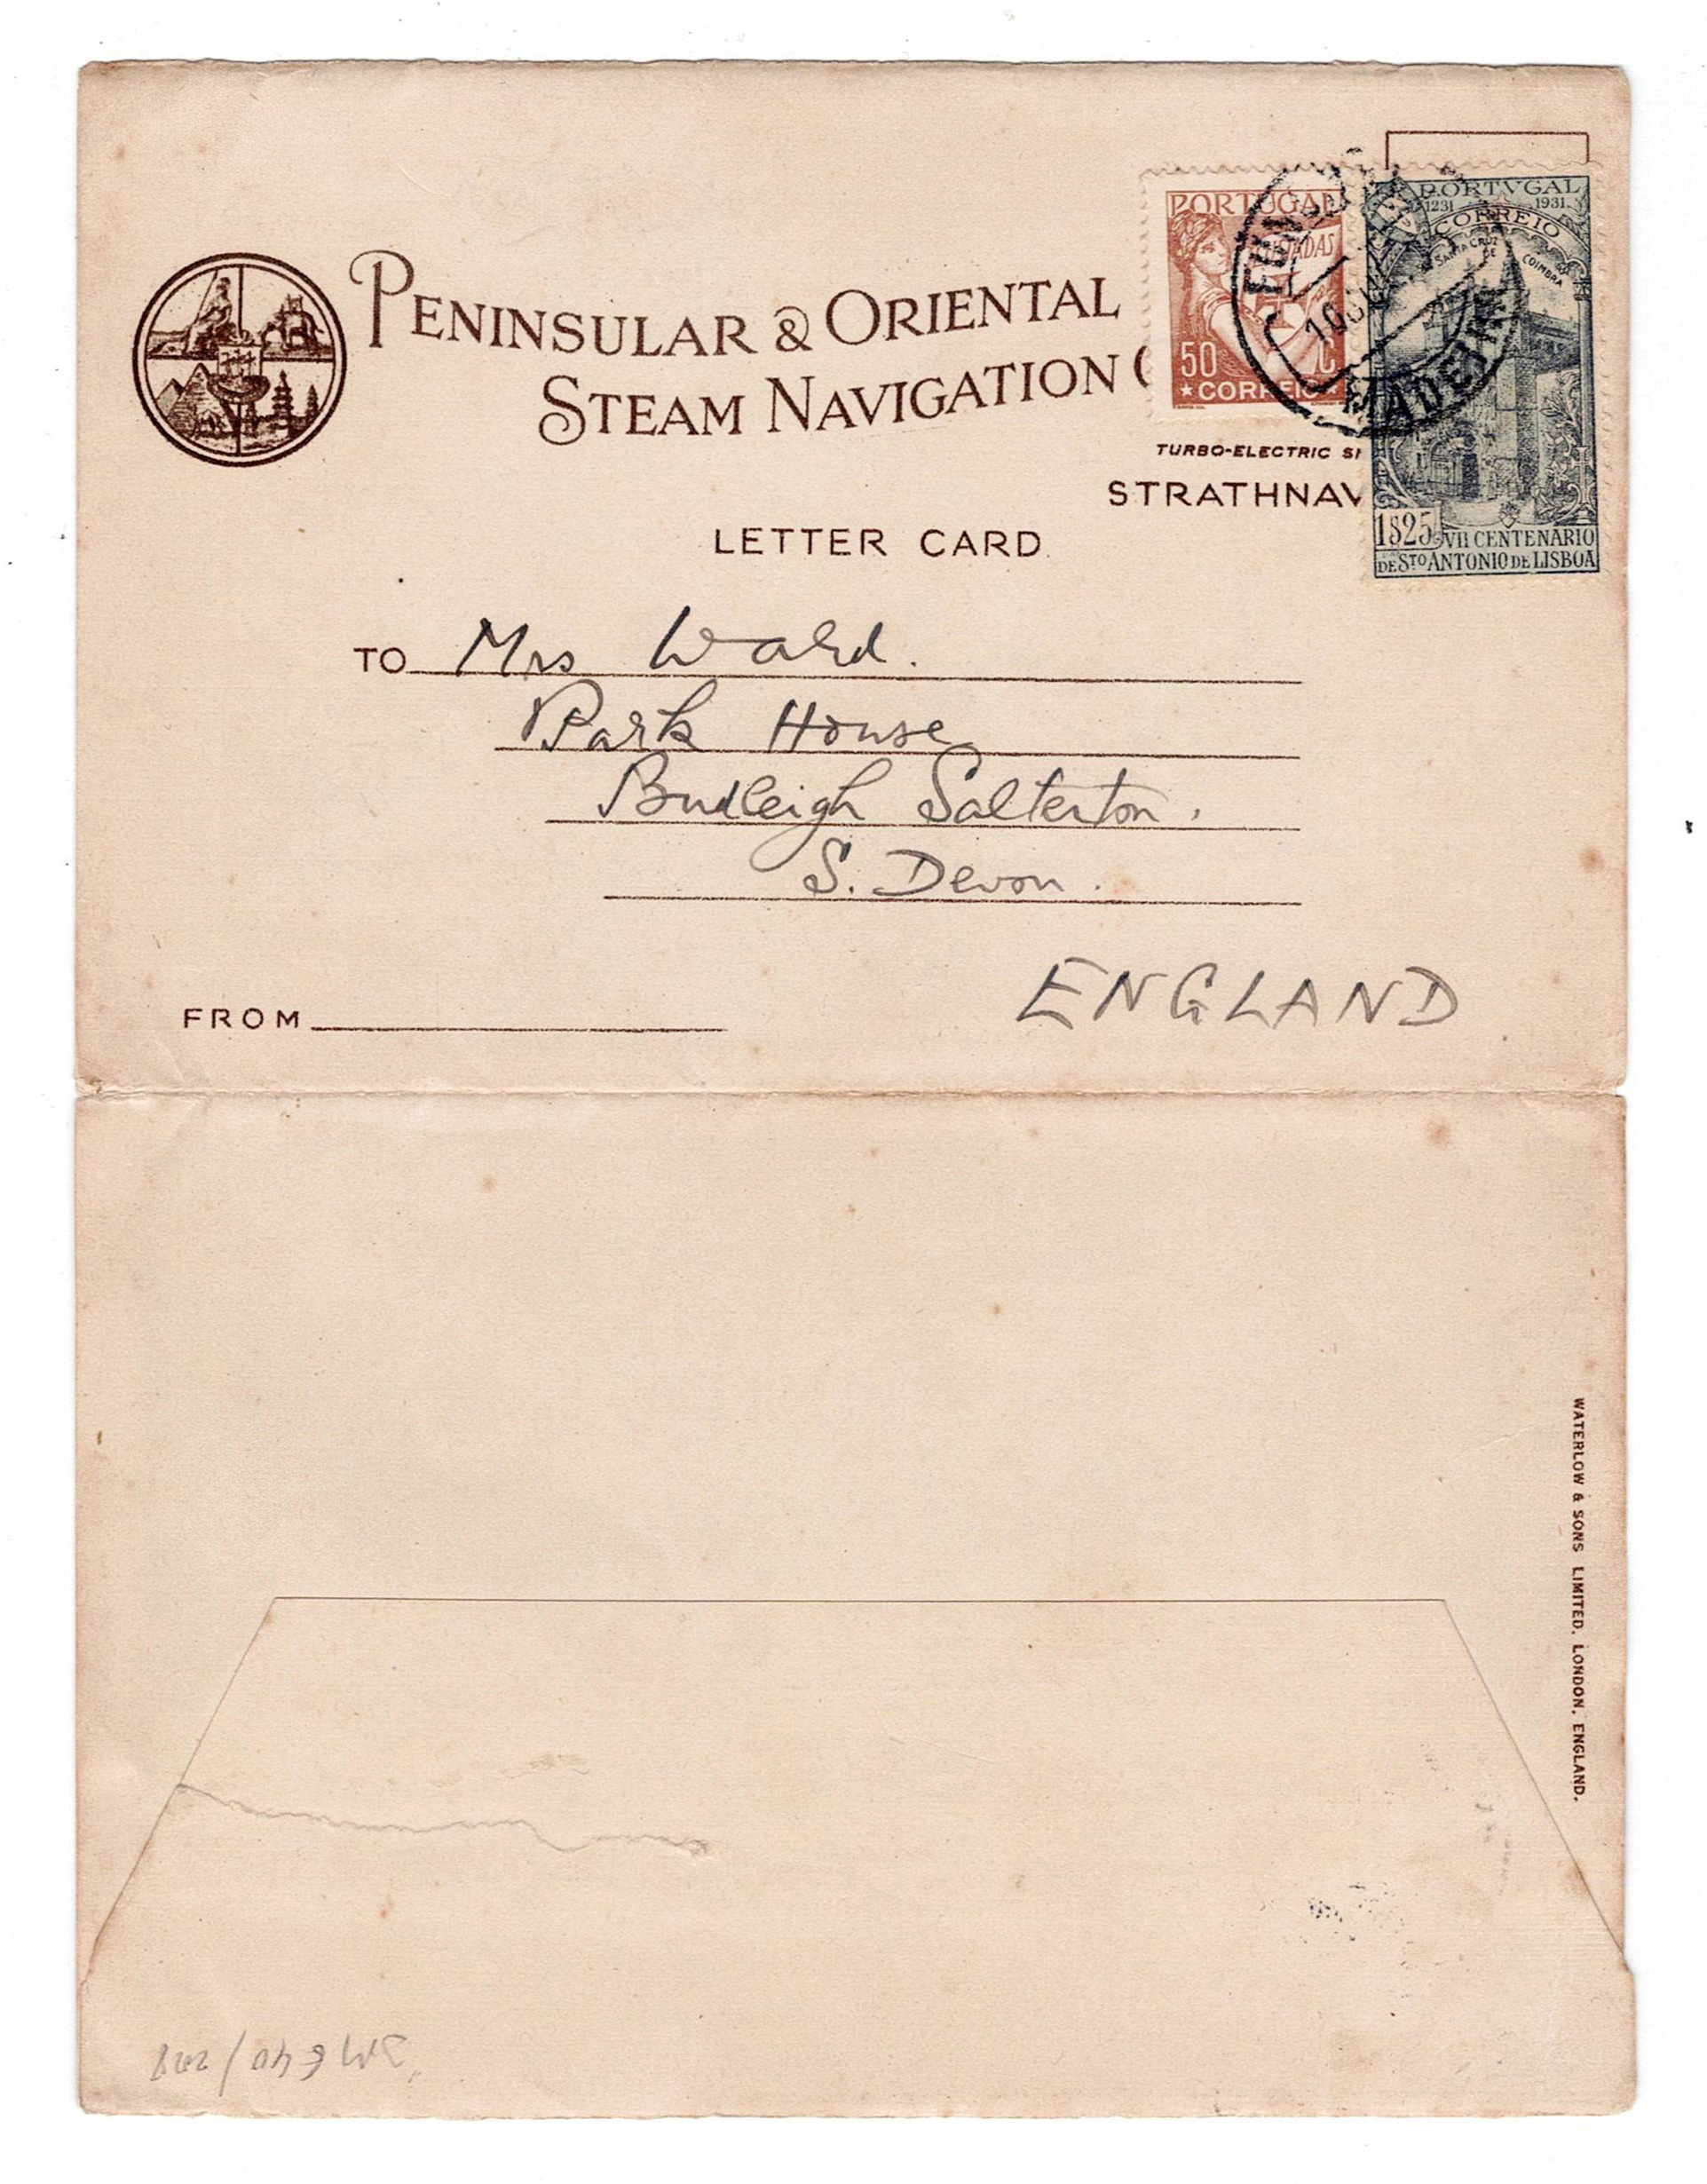 PENINSULAR & ORIENTAL
STEAM NAVIGATION
PORTUGAL
50
★ CORREIO
PORTVGAL
1231 1931
CORREIO
SANTA CRUZ
DE
COIMBRA
1$25 VII CENTENARIO
DE STO ANTONIO DE LISBOA
MADEIRA
TURBO-ELECTRIC
STRATHNAV
LETTER CARD
TO Mrs Ward.
Park House
Budleigh Salterton.
S. Devon.
ENGLAND
FROM
WATERLOW & SONS LIMITED. LONDON. ENGLAND.